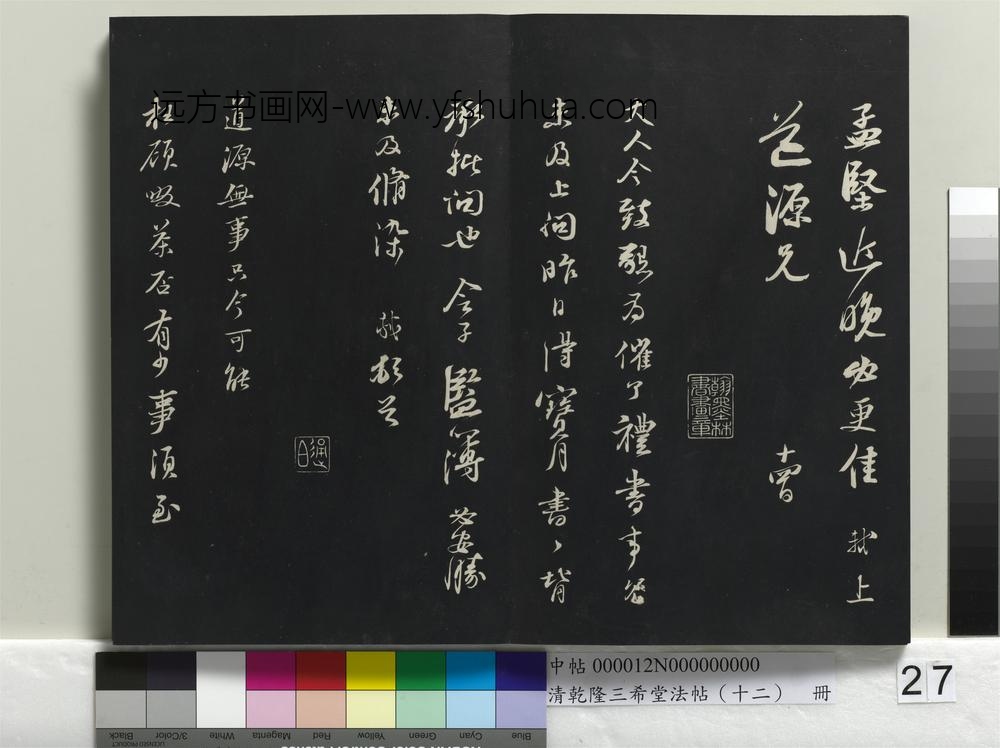 孟堅近晚必更佳 軾上
道源兄 十曾
翰墨林
書畫章
大人令致懇為催了禮書事冗
未及上問昨日得寶月書書背
承批問也令子監簿必安勝
未及脩染 軾頓首
道源無事只今可能
枉顧啜茶否有少事須至
远方书画网-www.yfshuhua.com
中帖 000012N000000000
清乾隆三希堂法帖(十二) 冊
27
Black
3/Color
White
Magenta
Red
Yellow
Green
Cyan
Blue